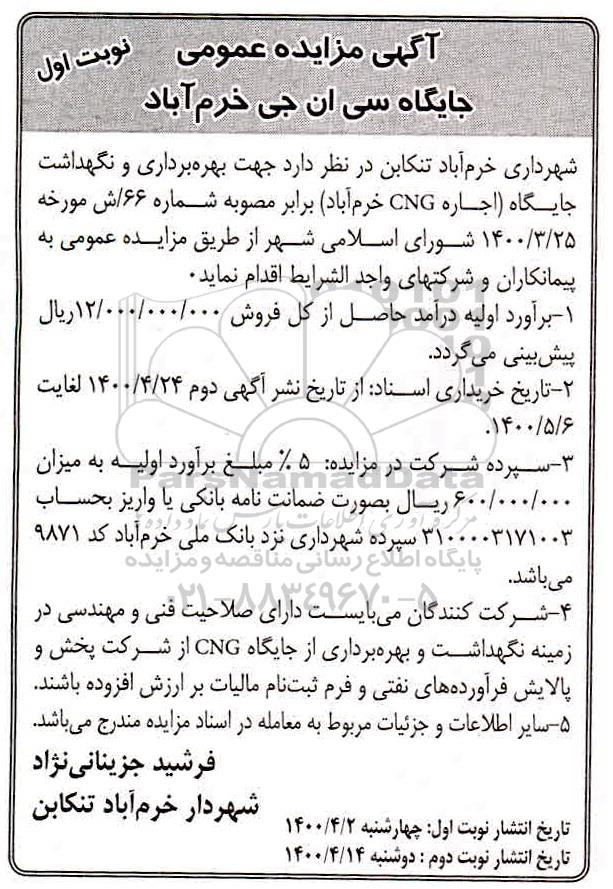 آگهی مزایده عمومی
نوبت اول
جایگاه سی ان جی خرم‌آباد
شهرداری خرم‌آباد تنکابن در نظر دارد جهت بهره‌برداری و نگهداشت
جایگاه (اجاره CNG خرم‌آباد) برابر مصوبه شماره ۶۶/ش مورخه
۱۴۰۰/۳/۲۵ شورای اسلامی شهر از طریق مزایده عمومی به
پیمانکاران و شرکتهای واجد الشرایط اقدام نماید.
۱-برآورد اولیه درآمد حاصل از کل فروش ۱۲/۰۰۰/۰۰۰/۰۰۰ریال
پیش‌بینی می‌گردد.
۲-تاریخ خریداری اسناد: از تاریخ نشر آگهی دوم ۱۴۰۰/۴/۲۴ لغایت
۱۴۰۰/۵/۶.
۳-سپرده شرکت در مزایده: ۵ ٪ مبلغ برآورد اولیه به میزان
۶۰۰/۰۰۰/۰۰۰ ریال بصورت ضمانت نامه بانکی یا واریز بحساب
۳۱۰۰۰۰۳۱۷۱۰۰۳ سپرده شهرداری نزد بانک ملی خرم‌آباد کد ۹۸۷۱
می‌باشد.
۴-شرکت کنندگان می‌بایست دارای صلاحیت فنی و مهندسی در
زمینه نگهداشت و بهره‌برداری از جایگاه CNG از شرکت پخش و
پالایش فرآورده‌های نفتی و فرم ثبت‌نام مالیات بر ارزش افزوده باشند.
۵-سایر اطلاعات و جزئیات مربوط به معامله در اسناد مزایده مندرج می‌باشد.
فرشید جزینانی‌نژاد
شهردار خرم‌آباد تنکابن
تاریخ انتشار نوبت اول: چهارشنبه ۱۴۰۰/۴/۲
تاریخ انتشار نوبت دوم : دوشنبه ۱۴۰۰/۴/۱۴
ParsNamadData
پایگاه اطلاع رسانی مناقصه و مزایده
۰۲۱-۸۸۳۴۹۶۷۰-۵